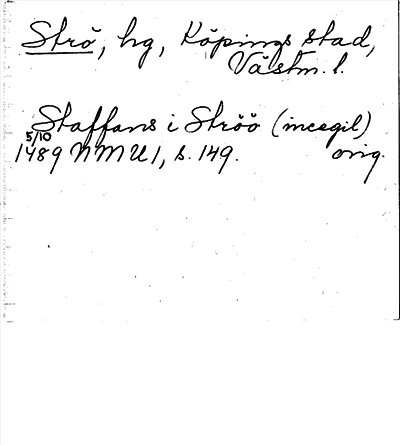 Strö, hg, Köpings stad,
Västm. l.
Staffans i Ströö (insegil)
5/10
1489 NMU 1, s. 149. orig.